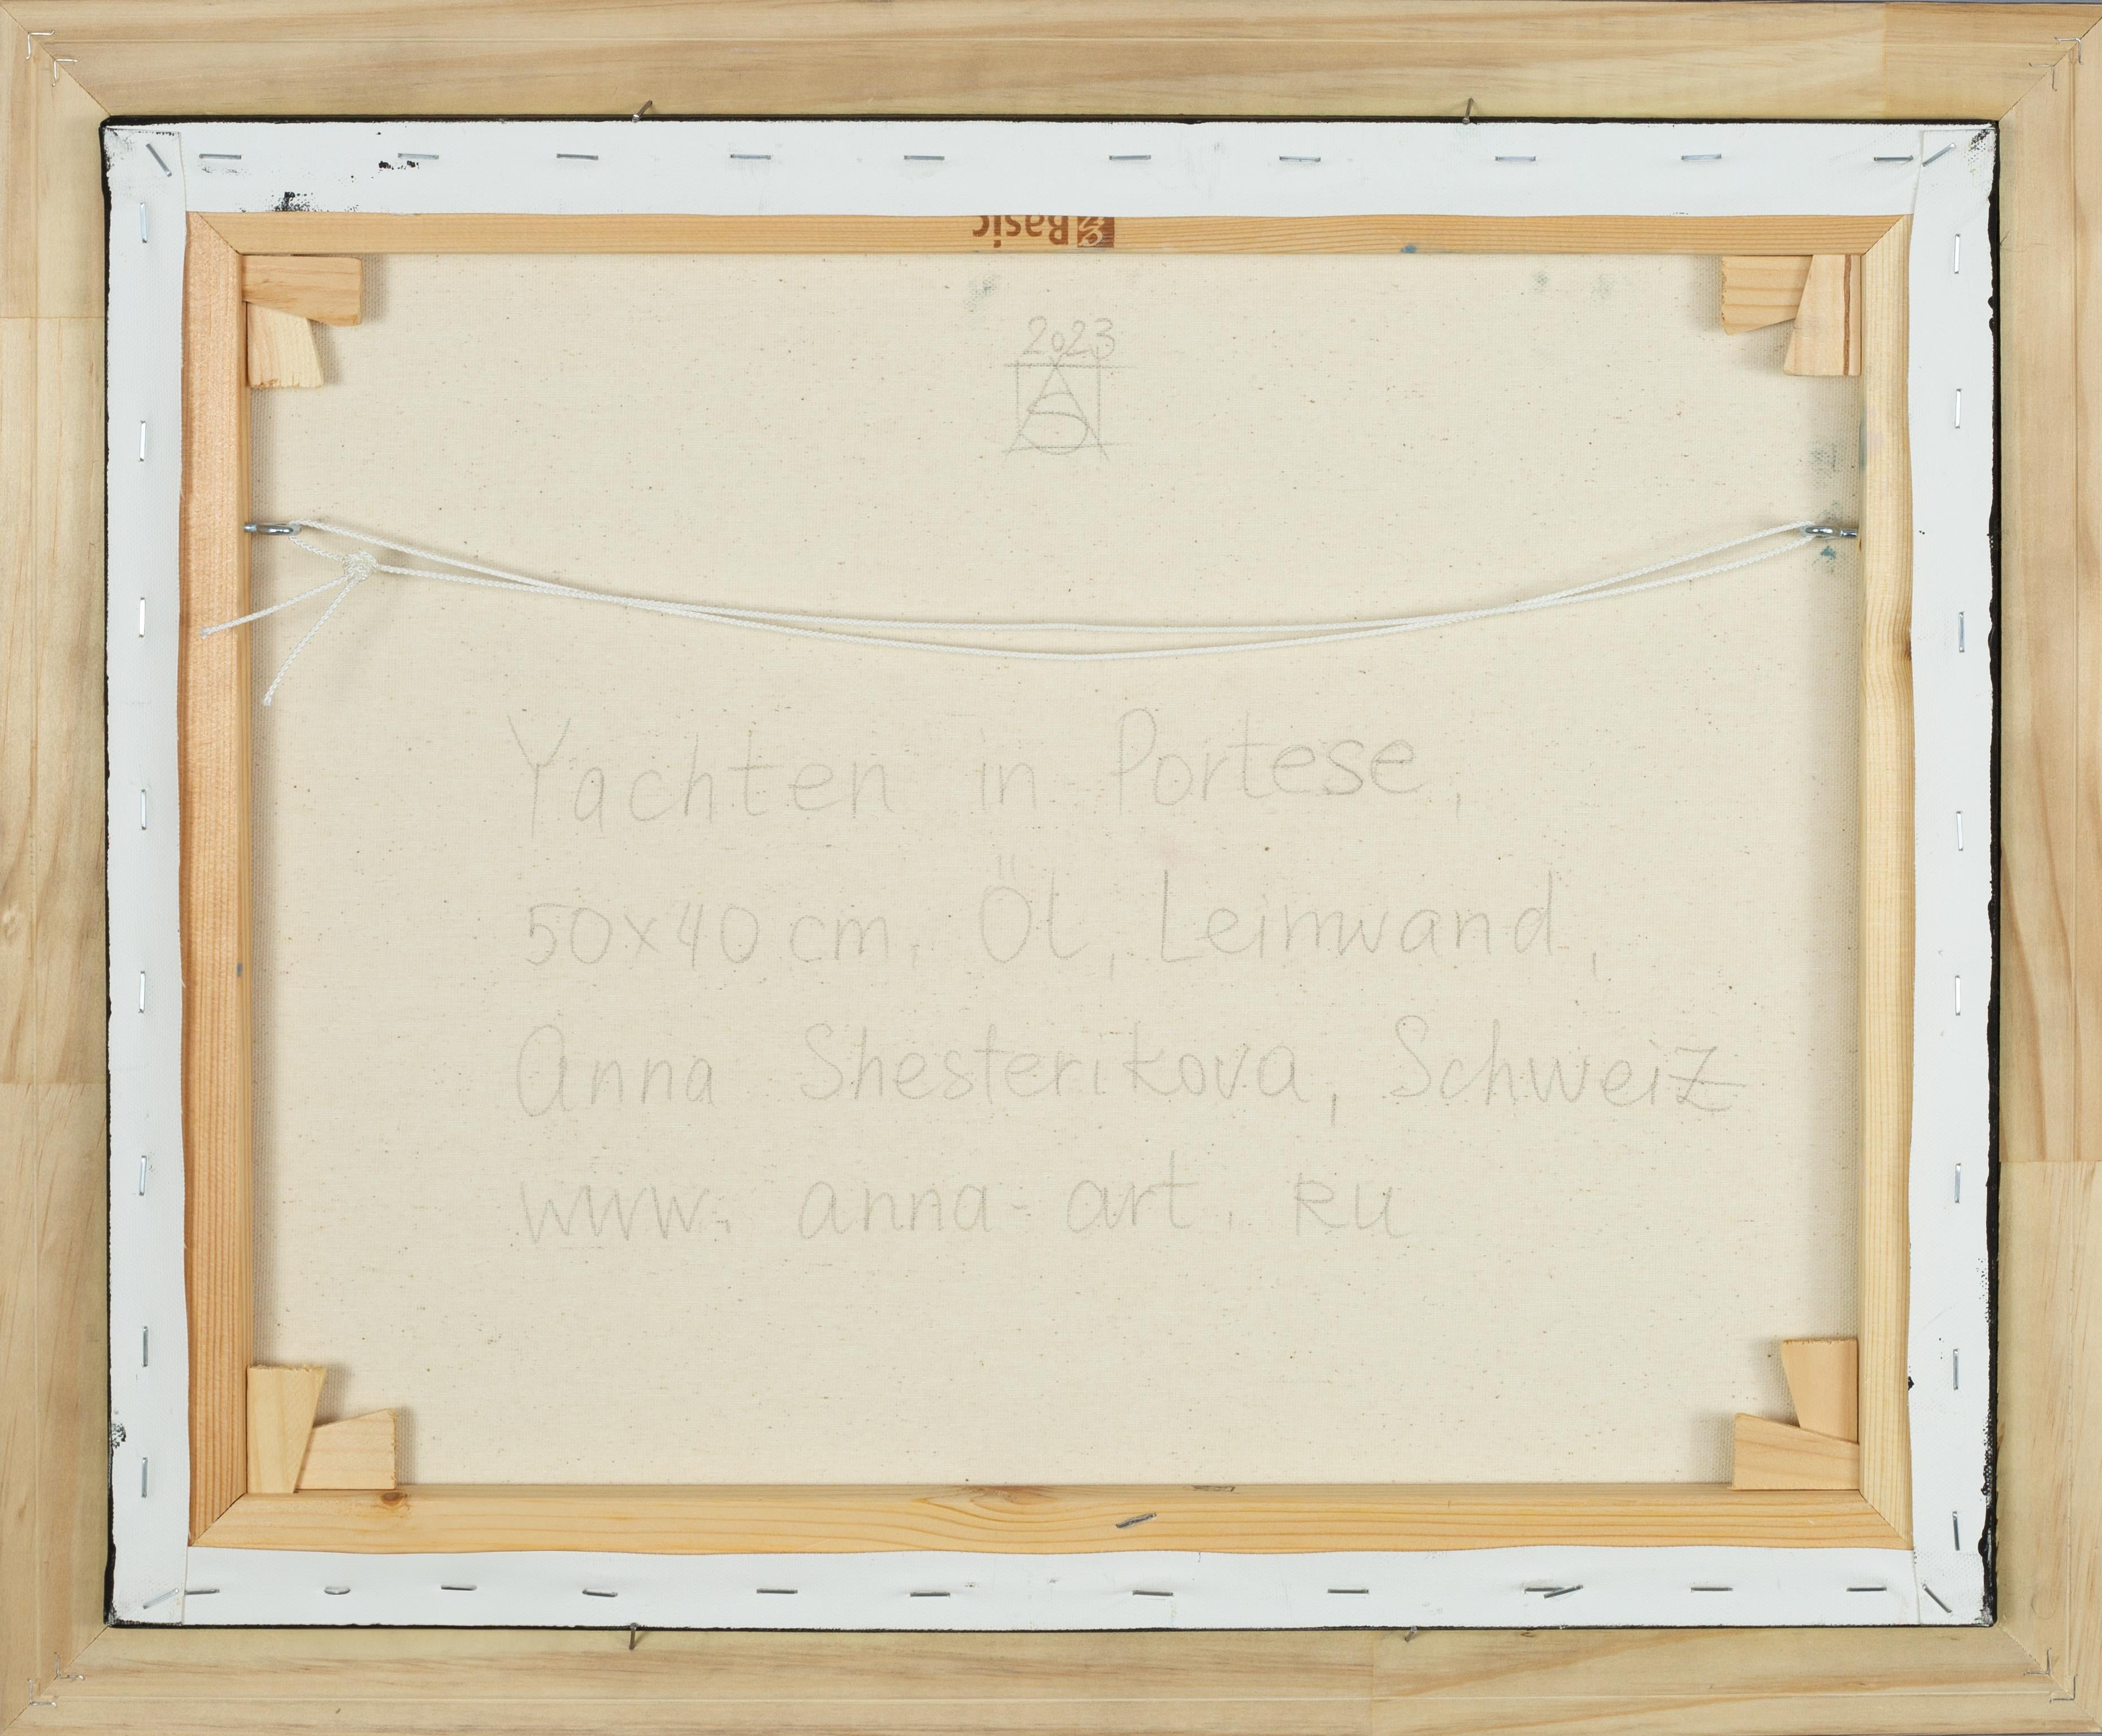 Basic
2023
Yachten in Portese,
50x40 cm, Öl, Leinwand,
Anna Shesterikova, Schweiz
www. anna-art. RU